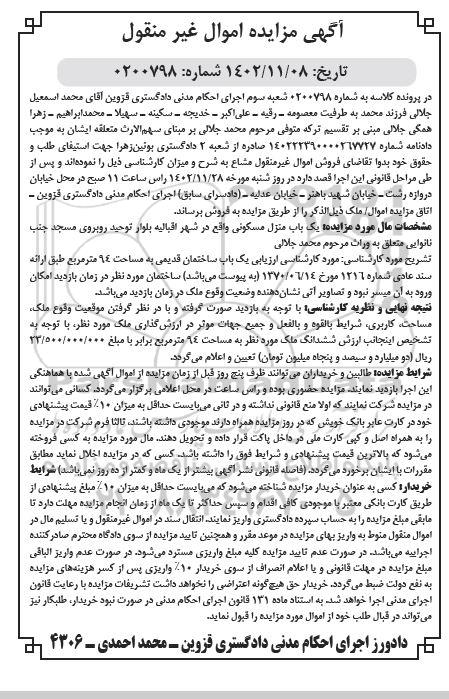 آگهی مزایده اموال غیر منقول
تاریخ: ۱۴۰۲/۱۱/۰۸ شماره: ۰۲۰۰۷۹۸
در پرونده کلاسه به شماره ۰۲۰۰۷۹۸ شعبه سوم اجرای احکام مدنی دادگستری قزوین آقای محمد اسمعیل
جلالی فرزند محمد به طرفیت معصومه ـ رقیه ـ علی‌اکبر ـ خدیجه ـ سکینه ـ سهیلا ـ محمدابراهیم ـ زهرا
همگی جلالی مبنی بر تقسیم ترکه متوفی مرحوم محمد جلالی بر مبنای سهم‌الارث متعلقه ایشان به موجب
دادنامه شماره ۱۴۰۲۲۲۳۹۰۰۰۰۲۶۷۷۲۷ صادره از شعبه ۲ دادگستری بوئین‌زهرا جهت استیفای طلب و
حقوق خود بدوا تقاضای فروش اموال غیرمنقول مشاع به شرح و میزان کارشناسی ذیل را نموده‌اند و پس از
طی مراحل قانونی این اجرا قصد دارد در روز شنبه مورخه ۱۴۰۲/۱۱/۲۸ راس ساعت ۱۱ صبح در محل خیابان
دروازه رشت ـ خیابان شهید باهنر ـ خیابان عدلیه ـ (دادسرای سابق) اجرای احکام مدنی دادگستری قزوین ـ
اتاق مزایده اموال/ ملک ذیل‌الذکر را از طریق مزایده به فروش برساند.
مشخصات مال مورد مزایده: یک باب منزل مسکونی واقع در شهر اقبالیه بلوار توحید روبروی مسجد جنب
نانوایی متعلق به وراث مرحوم محمد جلالی
تشریح مورد کارشناسی: مورد کارشناسی ارزیابی یک باب ساختمان قدیمی به مساحت ۹۴ مترمربع طبق ارائه
سند عادی شماره ۱۲۱۶ مورخ ۱۳۷۰/۰۶/۱۴ (به پیوست می‌باشد) ساختمان مورد نظر در زمان بازدید امکان
ورود به آن میسر نبود و تصاویر آتی نشان‌دهنده وضعیت وقوع ملک در زمان بازدید می‌باشد.
نتیجه نهایی و نظریه کارشناسی: با توجه به بازدید صورت گرفته و با در نظر گرفتن موقعیت وقوع ملک،
مساحت، کاربری، شرایط بالقوه و بالفعل و جمیع جهات موثر در ارزش‌گذاری ملک مورد نظر، با توجه به
تشخیص اینجانب ارزش ششدانگ ملک مورد نظر به مساحت ۹۴ مترمربع برابر با مبلغ ۲۳/۵۰۰/۰۰۰/۰۰۰
ریال (دو میلیارد و سیصد و پنجاه میلیون تومان) تعیین و اعلام می‌گردد.
شرایط مزایده: طالبین و خریداران می‌توانند ظرف پنج روز قبل از زمان مزایده از اموال آگهی شده با هماهنگی
این اجرا بازدید نمایند. مزایده حضوری بوده و راس ساعت در محل اعلامی برگزار می‌گردد. کسانی می‌توانند
در مزایده شرکت نمایند که اولا منع قانونی نداشته و در ثانی می‌بایست حداقل به میزان ۱۰٪ قیمت پیشنهادی
خود در کارت عابر بانک خویش که در روز مزایده همراه دارند موجودی داشته باشند. ثالثا فرم شرکت در مزایده
را به همراه اصل و کپی کارت ملی در داخل پاکت قرار داده و تحویل دهند. مال مورد مزایده به کسی فروخته
می‌شود که بالاترین قیمت پیشنهادی و شرایط فوق را داشته باشد. کسی که در مزایده اخلال نماید مطابق
مقررات با ایشان برخورد می‌گردد. (فاصله قانونی نشر آگهی بیشتر از یک ماه و کمتر از ده روز نمی‌باشد) شرایط
خریدار: کسی به عنوان خریدار مزایده شناخته می‌شود که می‌بایست حداقل به میزان ۱۰٪ مبلغ پیشنهادی از
طریق کارت بانکی معتبر با موجودی کافی اقدام و سپس حداکثر تا یک ماه از زمان انجام مزایده مهلت دارد تا
مابقی مبلغ مزایده را به حساب سپرده دادگستری واریز نمایند. انتقال سند در اموال غیرمنقول و یا تسلیم مال در
اموال منقول منوط به واریز بهای مزایده در موعد مقرر و همچنین تایید مزایده از سوی دادگاه محترم صادرکننده
اجراییه می‌باشد. در صورت عدم تایید مزایده کلیه مبلغ واریزی مسترد می‌شود. در صورت عدم واریز الباقی
مبلغ مزایده در مهلت قانونی و یا اعلام انصراف از سوی خریدار ۱۰٪ واریزی پس از کسر هزینه‌های مزایده
به نفع دولت ضبط می‌گردد. خریدار حق هیچ‌گونه اعتراضی را نخواهد داشت تشریفات مزایده با رعایت قانون
اجرای مدنی اجرا خواهد شد. به استناد ماده ۱۳۱ قانون اجرای احکام مدنی در صورت نبود خریدار، طلبکار نیز
می‌تواند در قبال طلب خود از اموال مورد مزایده را قبول نماید.
دادورز اجرای احکام مدنی دادگستری قزوین ـ محمد احمدی ـ ۴۳۰۶